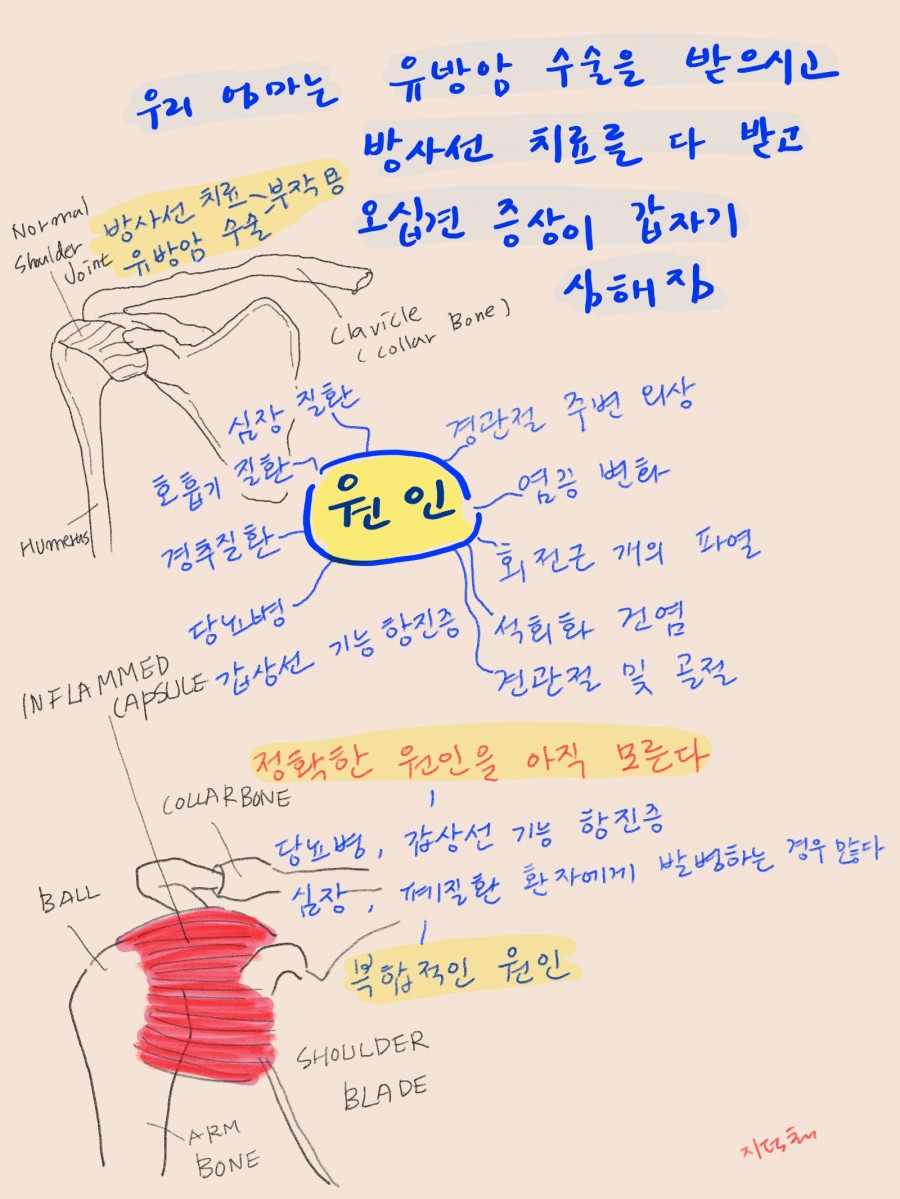 우리 엄마는 유방암 수술을 받으시고
방사선 치료를 다 받고
오십견 증상이 갑자기
심해짐
Normal
Shoulder
Joint
방사선 치료
유방암 수술
부작용
Clavicle
(Collar Bone)
Humerus
원인
심장 질환
호흡기 질환
경추질환
당뇨병
갑상선 기능 항진증
경관절 주변 외상
염증 변화
회전근 개의 파열
석회화 건염
견관절 및 골절
INFLAMMED
CAPSULE
정확한 원인을 아직 모른다
당뇨병, 갑상선 기능 항진증
심장, 폐질환 환자에게 발병하는 경우 많다
복합적인 원인
COLLARBONE
BALL
SHOULDER
BLADE
ARM
BONE